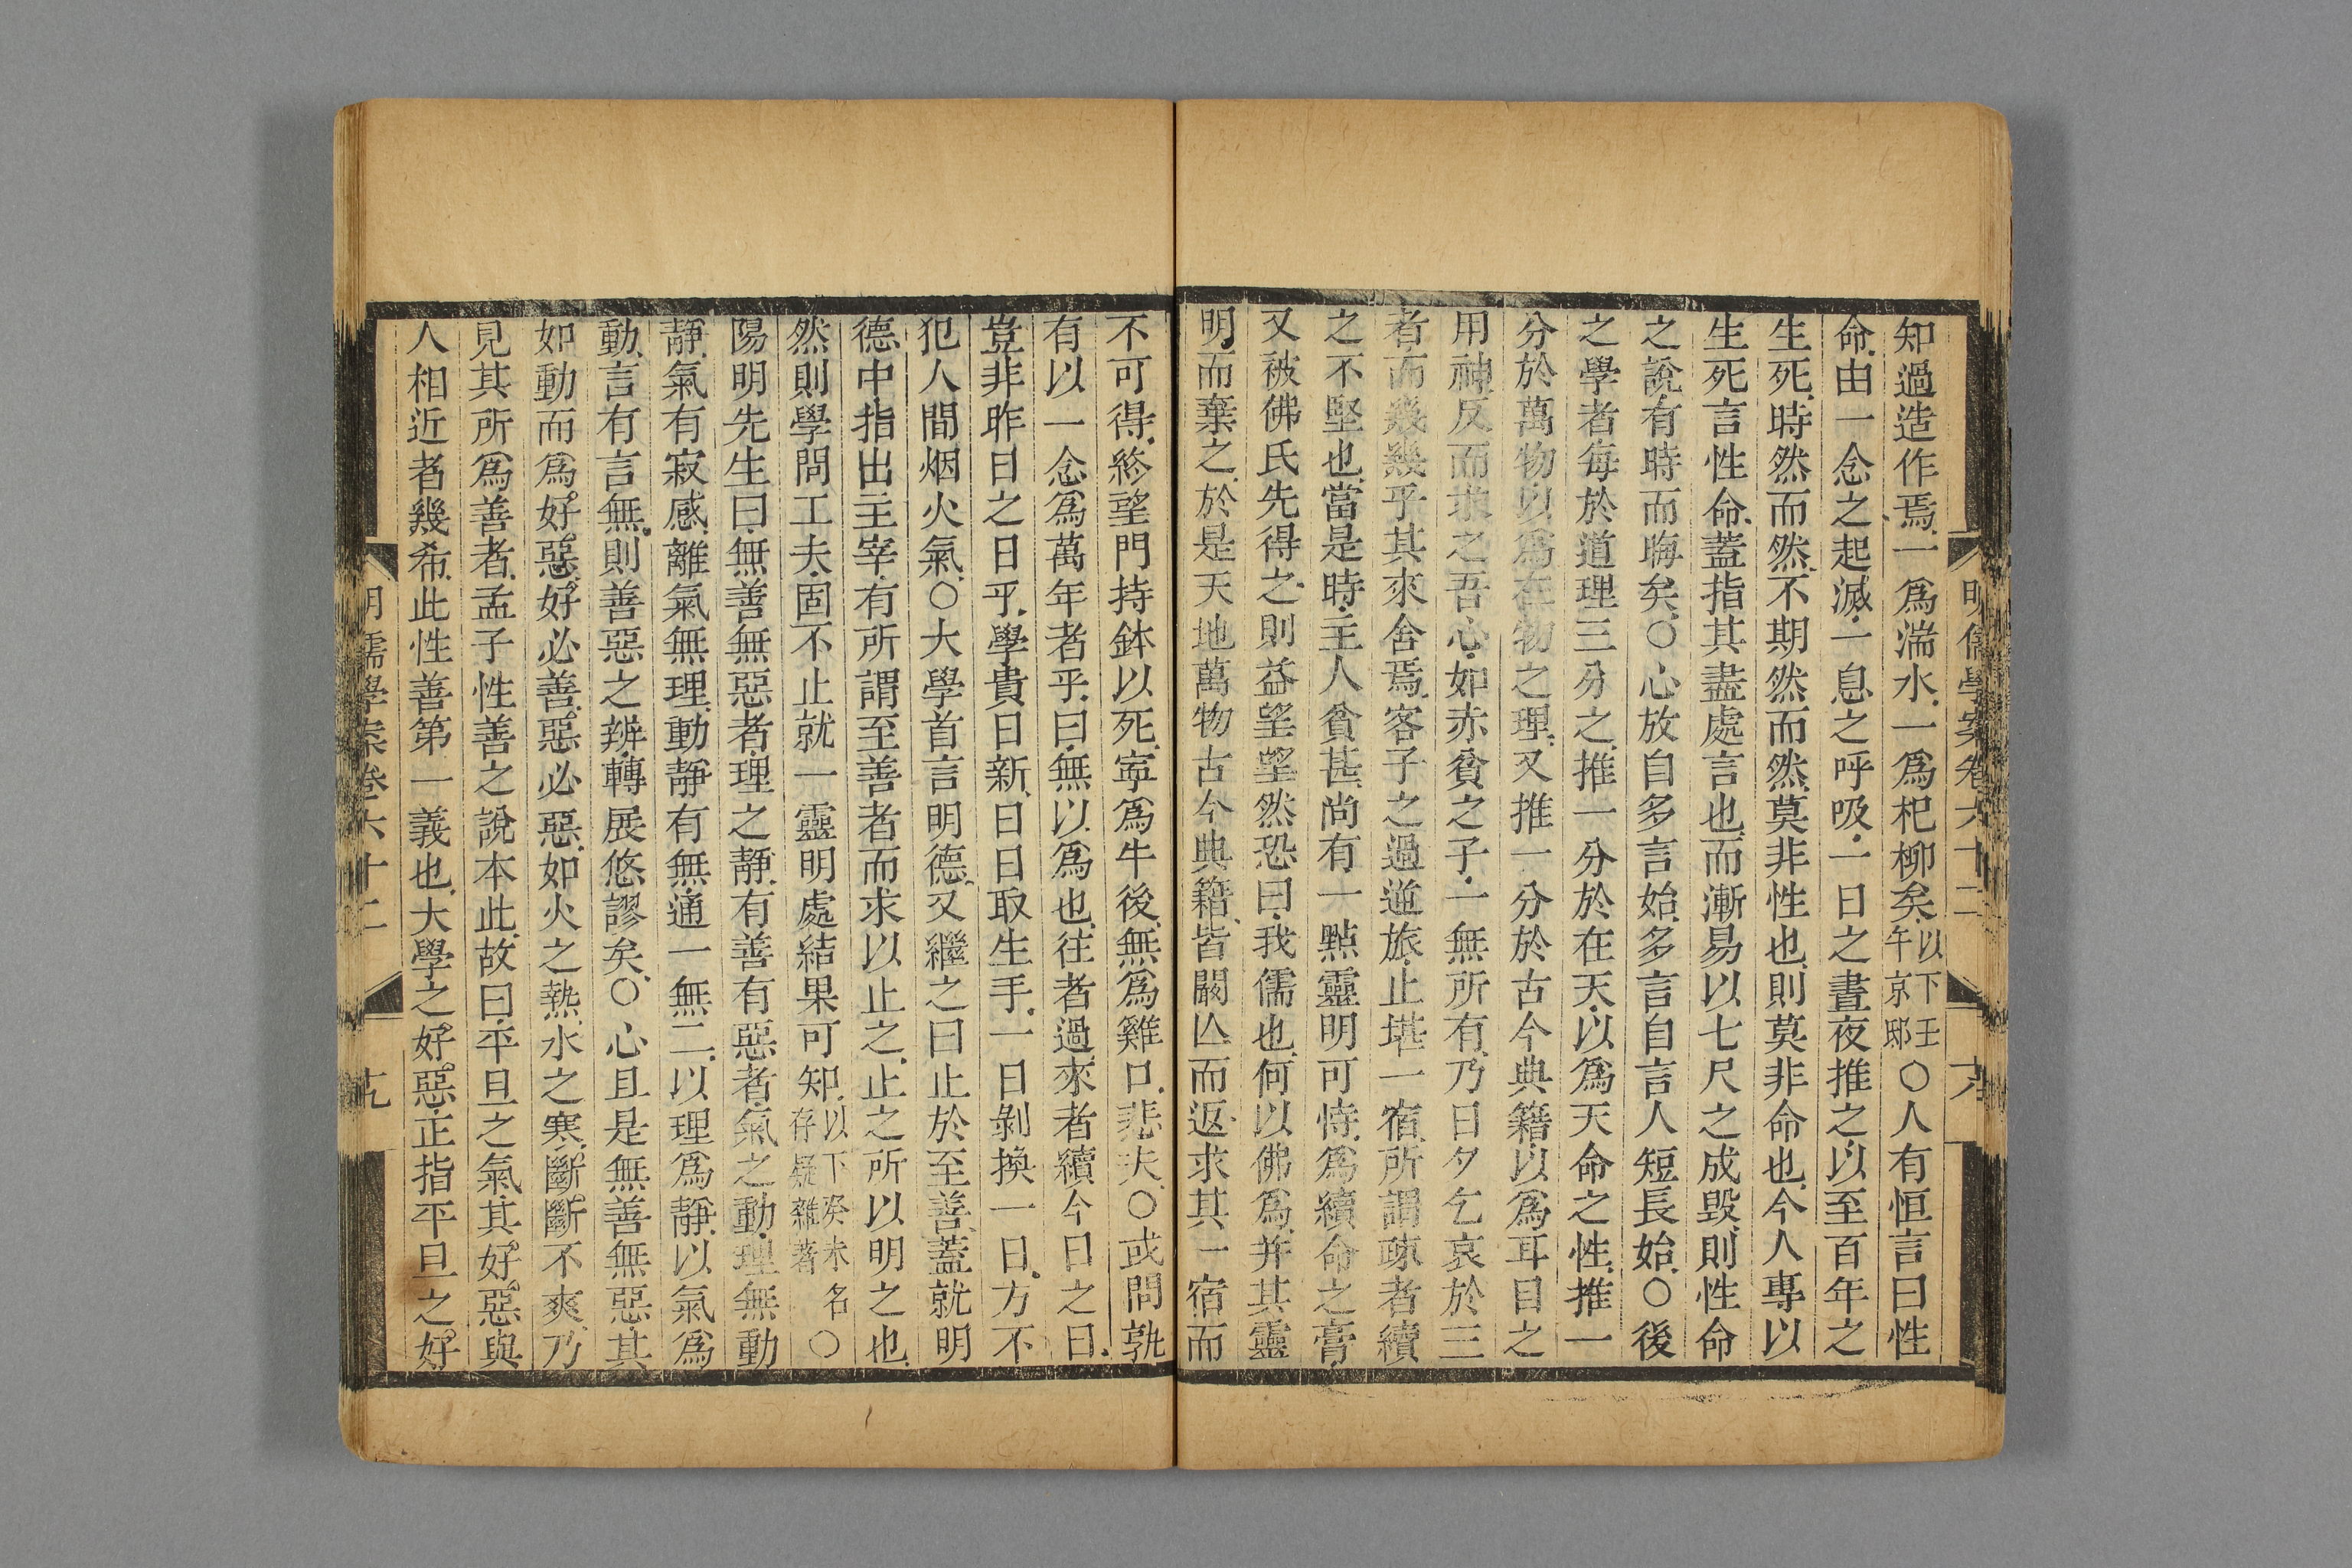 知過造作焉一爲湍水一爲杞柳矣以下壬午京邸○人有恒言曰性
命由一念之起滅一息之呼吸一日之晝夜推之以至百年之
生死時然而然不期然而然莫非性也則莫非命也今人專以
生死言性命蓋指其盡處言也而漸易以七尺之成毀則性命
之說有時而晦矣○心放自多言始多言自言人短長始○後
之學者每於道理三分之推一分於在天以爲天命之性推一
分於萬物以爲在物之理又推一分於古今典籍以爲耳目之
用神反而求之吾心如赤貧之子一無所有乃日夕乞哀於三
者而幾幾乎其來舍焉客子之過逆旅止堪一宿所謂疎者續
之不堅也當是時主人貧甚尚有一點靈明可恃爲續命之膏
又被佛氏先得之則益望望然恐曰我儒也何以佛爲并其靈
明而棄之於是天地萬物古今典籍皆闕亾而返求其一宿而
不可得終望門持鉢以死寧爲牛後無爲雞口悲夫○或問孰
有以一念爲萬年者乎曰無以爲也往者過來者續今日之日
豈非昨日之日乎學貴日新日日取生手一日剝換一日方不
犯人間烟火氣○大學首言明德又繼之曰止於至善蓋就明
德中指出主宰有所謂至善者而求以止之止之所以明之也
然則學問工夫固不止就一靈明處結果可知以下癸未名存疑雜著○
陽明先生曰無善無惡者理之靜有善有惡者氣之動理無動
靜氣有寂感離氣無理動靜有無通一無二以理爲靜以氣爲
動言有言無則善惡之辨轉展悠謬矣○心且是無善無惡其
如動而爲好惡好必善惡必惡如火之熱水之寒斷斷不爽乃
見其所爲善者孟子性善之說本此故曰平旦之氣其好惡與
人相近者幾希此性善第一義也大學之好惡正指平旦之好
明儒學案卷六十二